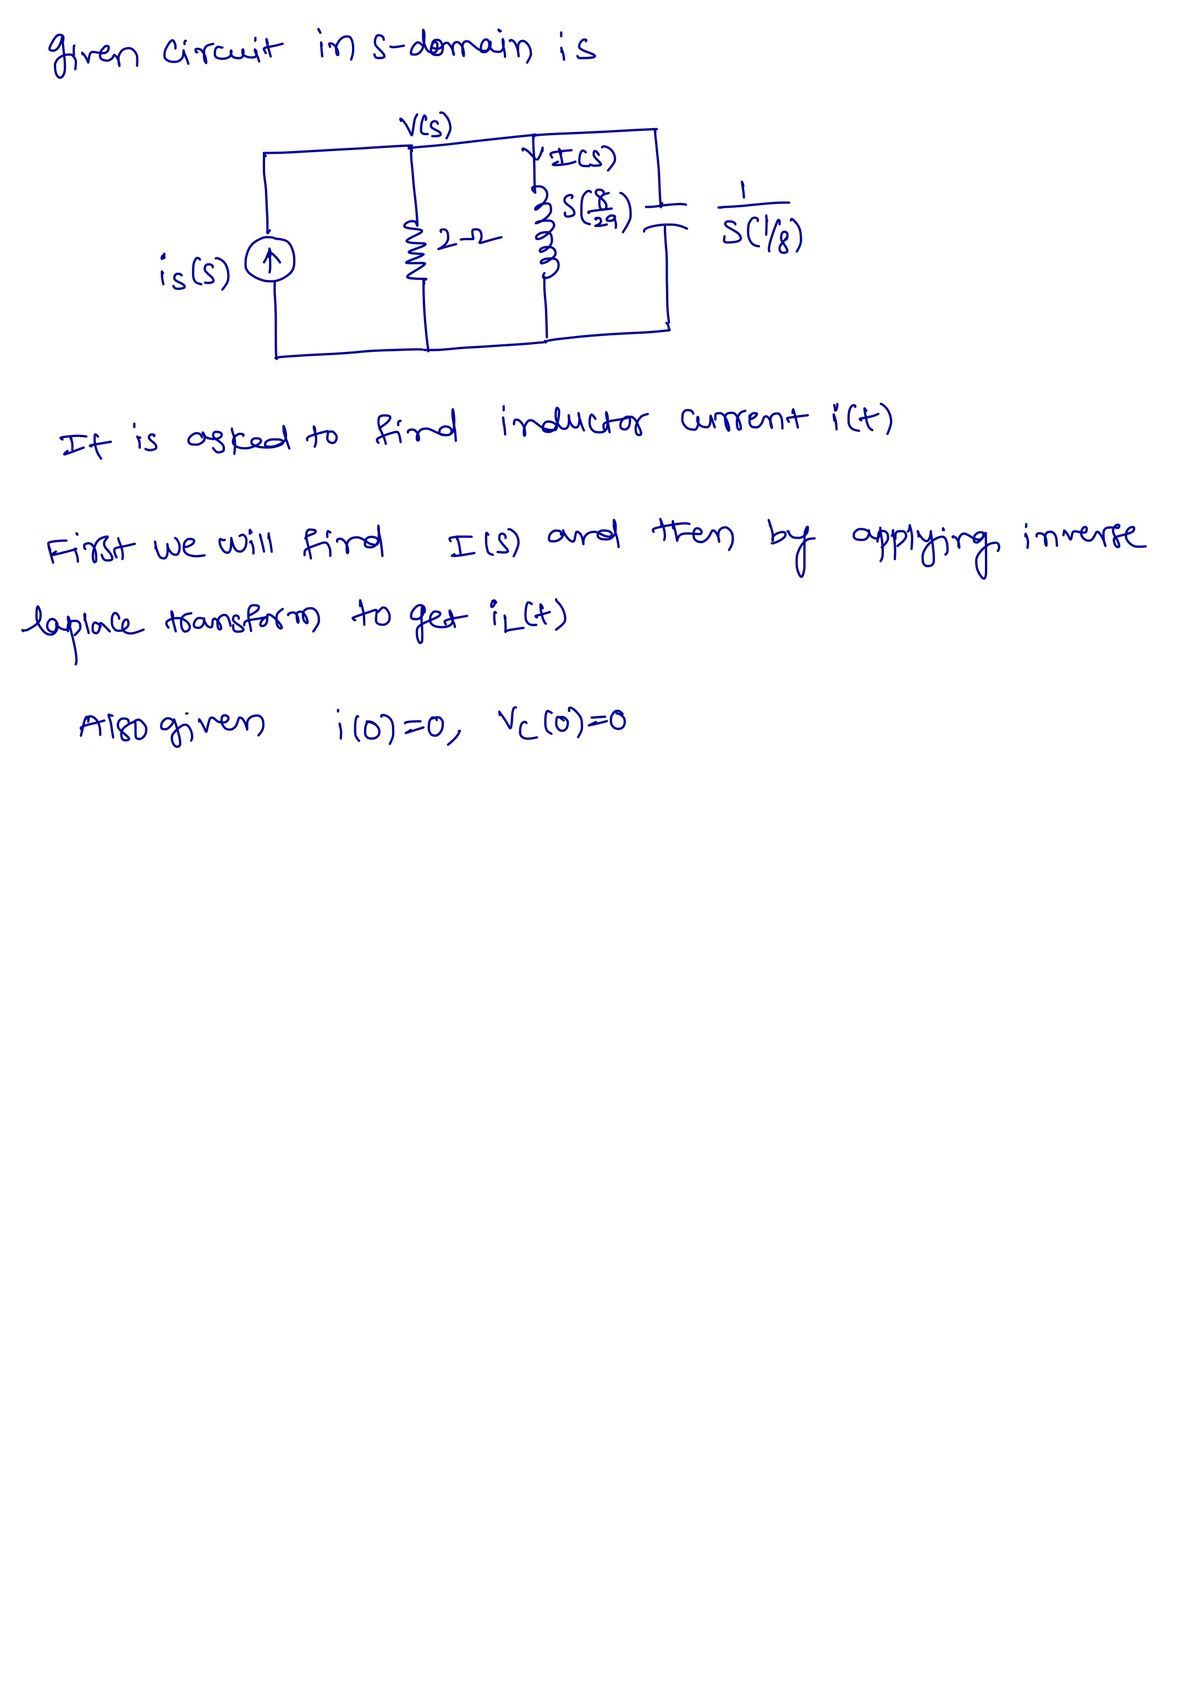 given circuit in s-domain is
V(s)
I(s)
is(s)
2Ω
S(8/29)
1/S(1/8)
It is asked to find inductor current i(t)
First we will find I(s) and then by applying inverse
laplace transform to get iL(t)
Also given i(0)=0, Vc(0)=0